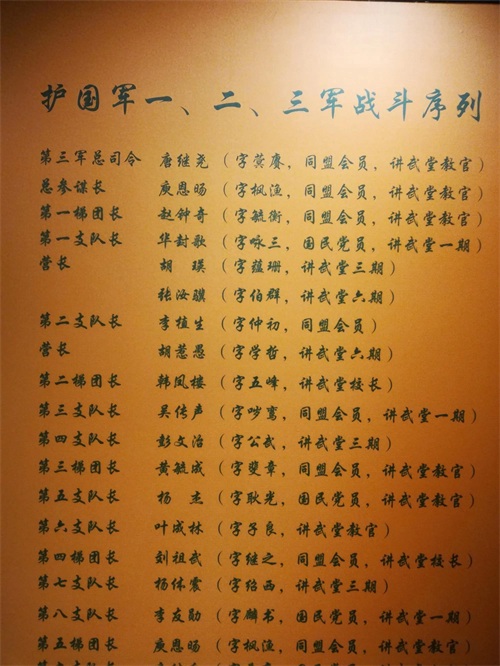 护国军一、二、三军战斗序列
第三军总司令 唐继尧 （字蓂赓，同盟会员，讲武堂教官）
总参谋长 庾恩旸 （字枫渔，同盟会员，讲武堂教官）
第一梯团长 赵钟奇 （字毓衡，同盟会员，讲武堂教官）
第一支队长 华封歌 （字咏三，国民党员，讲武堂一期）
营长 胡瑛 （字蕴珊，讲武堂三期）
张汝骥 （字伯群，讲武堂六期）
第二支队长 李植生 （字仲初，同盟会员）
营长 胡惹愚 （字学哲，讲武堂六期）
第二梯团长 韩凤楼 （字五峰，讲武堂校长）
第三支队长 吴传声 （字吵鸾，同盟会员，讲武堂一期）
第四支队长 彭文治 （字公武，讲武堂三期）
第三梯团长 黄毓成 （字斐章，同盟会员，讲武堂教官）
第五支队长 杨杰 （字耿光，国民党员，讲武堂教官）
第六支队长 叶成林 （字子良，讲武堂教官）
第四梯团长 刘祖武 （字继之，同盟会员，讲武堂校长）
第七支队长 杨体震 （字绍西，讲武堂三期）
第八支队长 李友勋 （字麟书，国民党员，讲武堂一期）
第五梯团长 庾恩旸 （字枫渔，同盟会员，讲武堂教官）